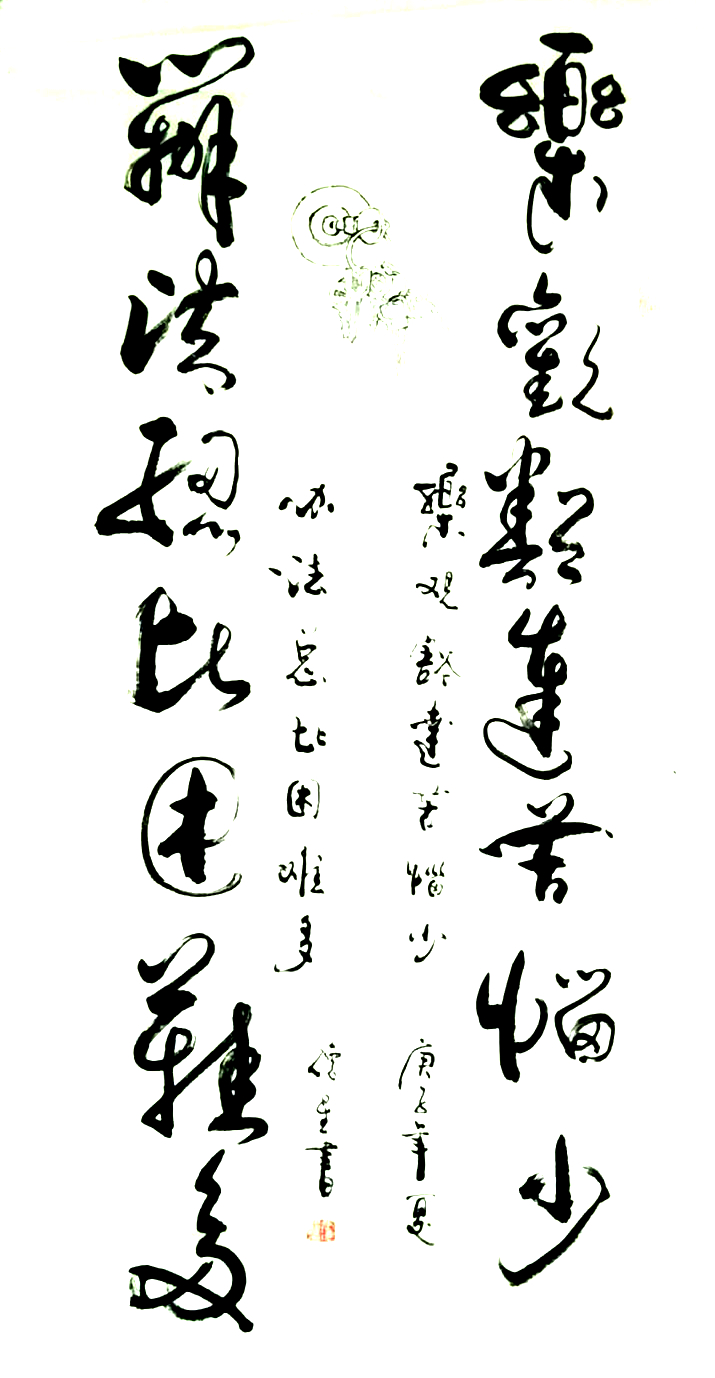 樂觀豁達苦惱少
樂观豁達苦惱少
庚子年夏
办法总比困难多
書
辦法總比困難多